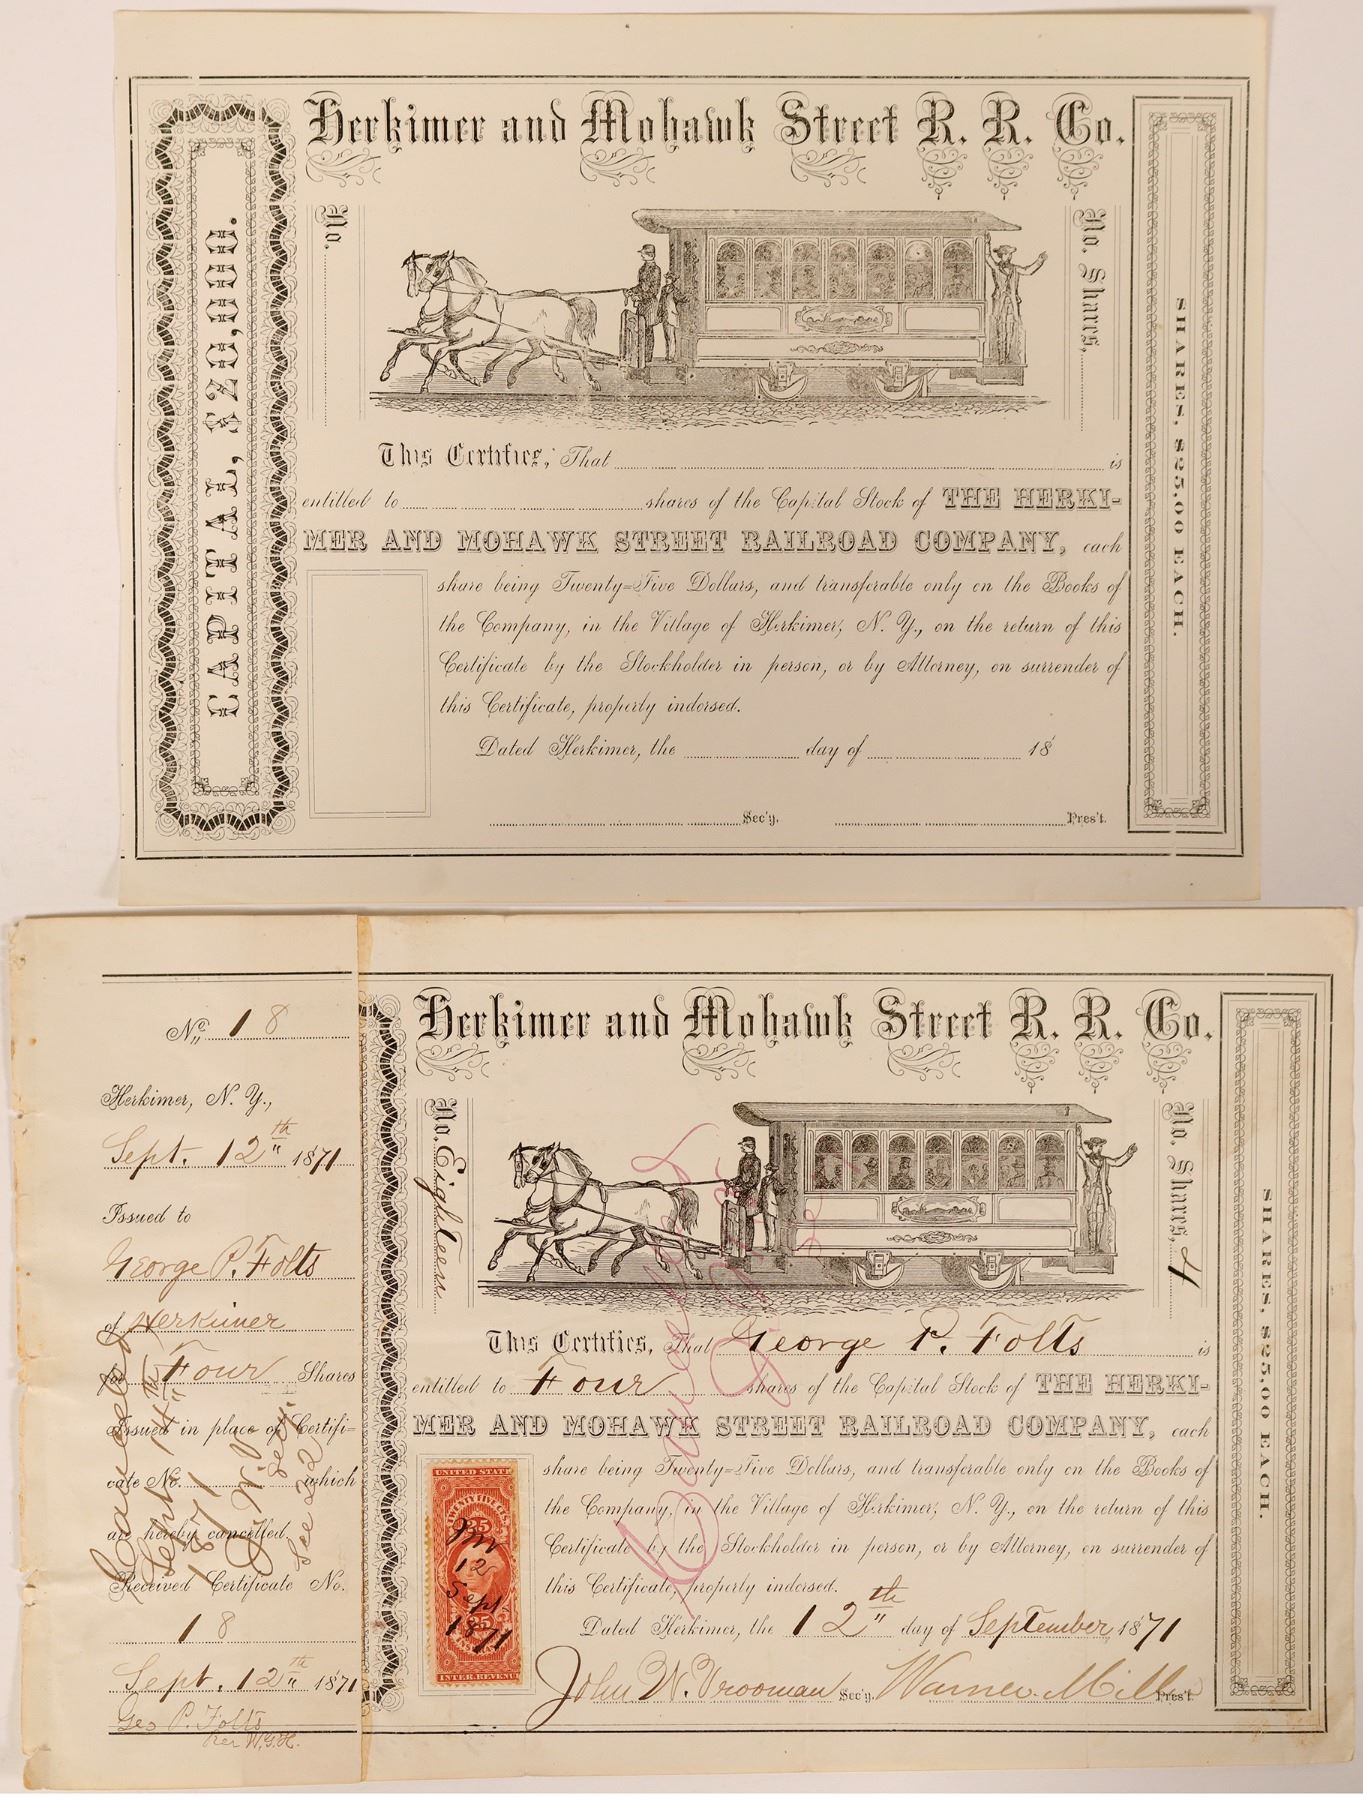 Herkimer and Mohawk Street R. R. Co.
CAPITAL, $20,000.
No.
No. Shares,
SHARES, $25,00 EACH.
This Certifies, That is
entitled to shares of the Capital Stock of THE HERKI-
MER AND MOHAWK STREET RAILROAD COMPANY, each
share being Twenty=Five Dollars, and transferable only on the Books of
the Company, in the Village of Herkimer, N. Y., on the return of this
Certificate by the Stockholder in person, or by Attorney, on surrender of
this Certificate, properly indorsed.
Dated Herkimer, the day of 18
Sec'y. Pres't.
No. 18
Herkimer, N. Y.,
Sept. 12th 1871
Issued to
George P. Folts
of Herkimer
Four Shares
Issued in place of Certifi=
cate No. which
are hereby cancelled.
Received Certificate No.
18
Sept. 12th 1871
Geo P. Folts
Per W.G.H.
Cancelled
Sept 14th
1871
J.W.V.
Secy.
See 22
Herkimer and Mohawk Street R. R. Co.
No. Eighteen
No. Shares, 4
SHARES, $25,00 EACH.
This Certifies, That George P. Folts is
entitled to Four shares of the Capital Stock of THE HERKI-
MER AND MOHAWK STREET RAILROAD COMPANY, each
share being Twenty=Five Dollars, and transferable only on the Books of
the Company, in the Village of Herkimer, N. Y., on the return of this
Certificate by the Stockholder in person, or by Attorney, on surrender of
this Certificate, properly indorsed.
Dated Herkimer, the 12th day of September 1871
John W. Vrooman Sec'y. Warner Miller Pres't.
Cancelled
UNITED STATES
TWENTY FIVE CTS.
25
12
Sept
1871
25
INTER. REVENUE